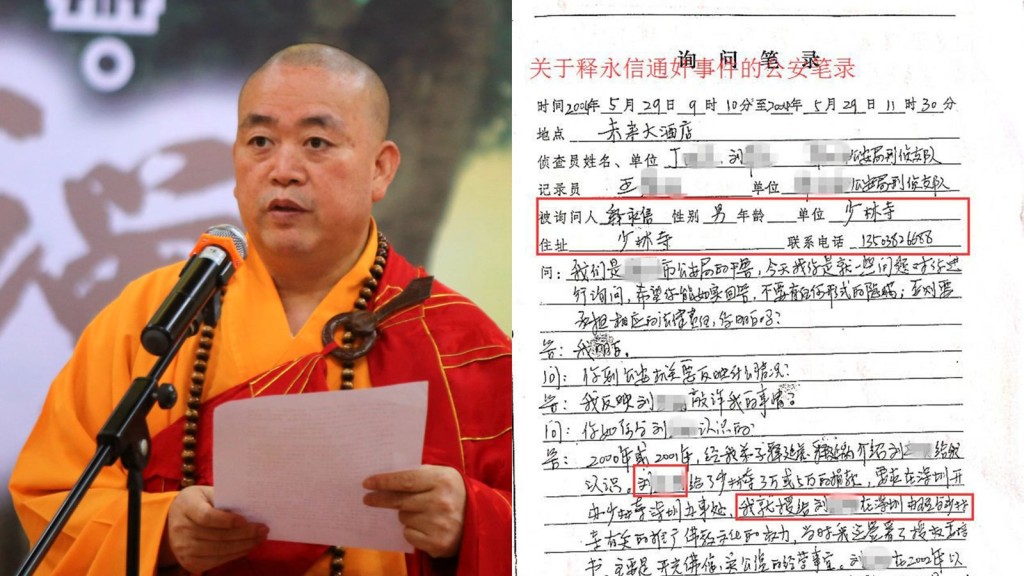 询问笔录
关于释永信通奸事件的公安笔录
时间2004年5月29日9时10分至2004年5月29日11时30分
地点 未来大酒店
侦查员姓名、单位 丁 刘 公安局刑侦支队
记录员 王 单位 公安局刑侦支队
被询问人 释永信 性别 男 年龄 单位 少林寺
住址 少林寺 联系电话 13503826688
问：我们是 市公安局的干警，今天我们是就一些问题对你进
行询问，希望你能如实回答，不要有任何形式的隐瞒；否则要
承担相应的法律责任，你明白吗？
答：我明白。
问：你到公安机关要反映什么情况？
答：我反映刘 敲诈我的事情？
问：你如何与刘 认识的？
答：2000年或2001年，经我弟子释延 介绍刘 给我
认识。刘 给了少林寺3万或5万的捐款，要求在深圳开
办少林寺深圳办事处，我就授给刘 在深圳办理与少林
寺有关的推广佛教文化的权力，当时我还签署了授权委托
书，主要是开光佛像，买公 的经营事宜。刘 在2000年以